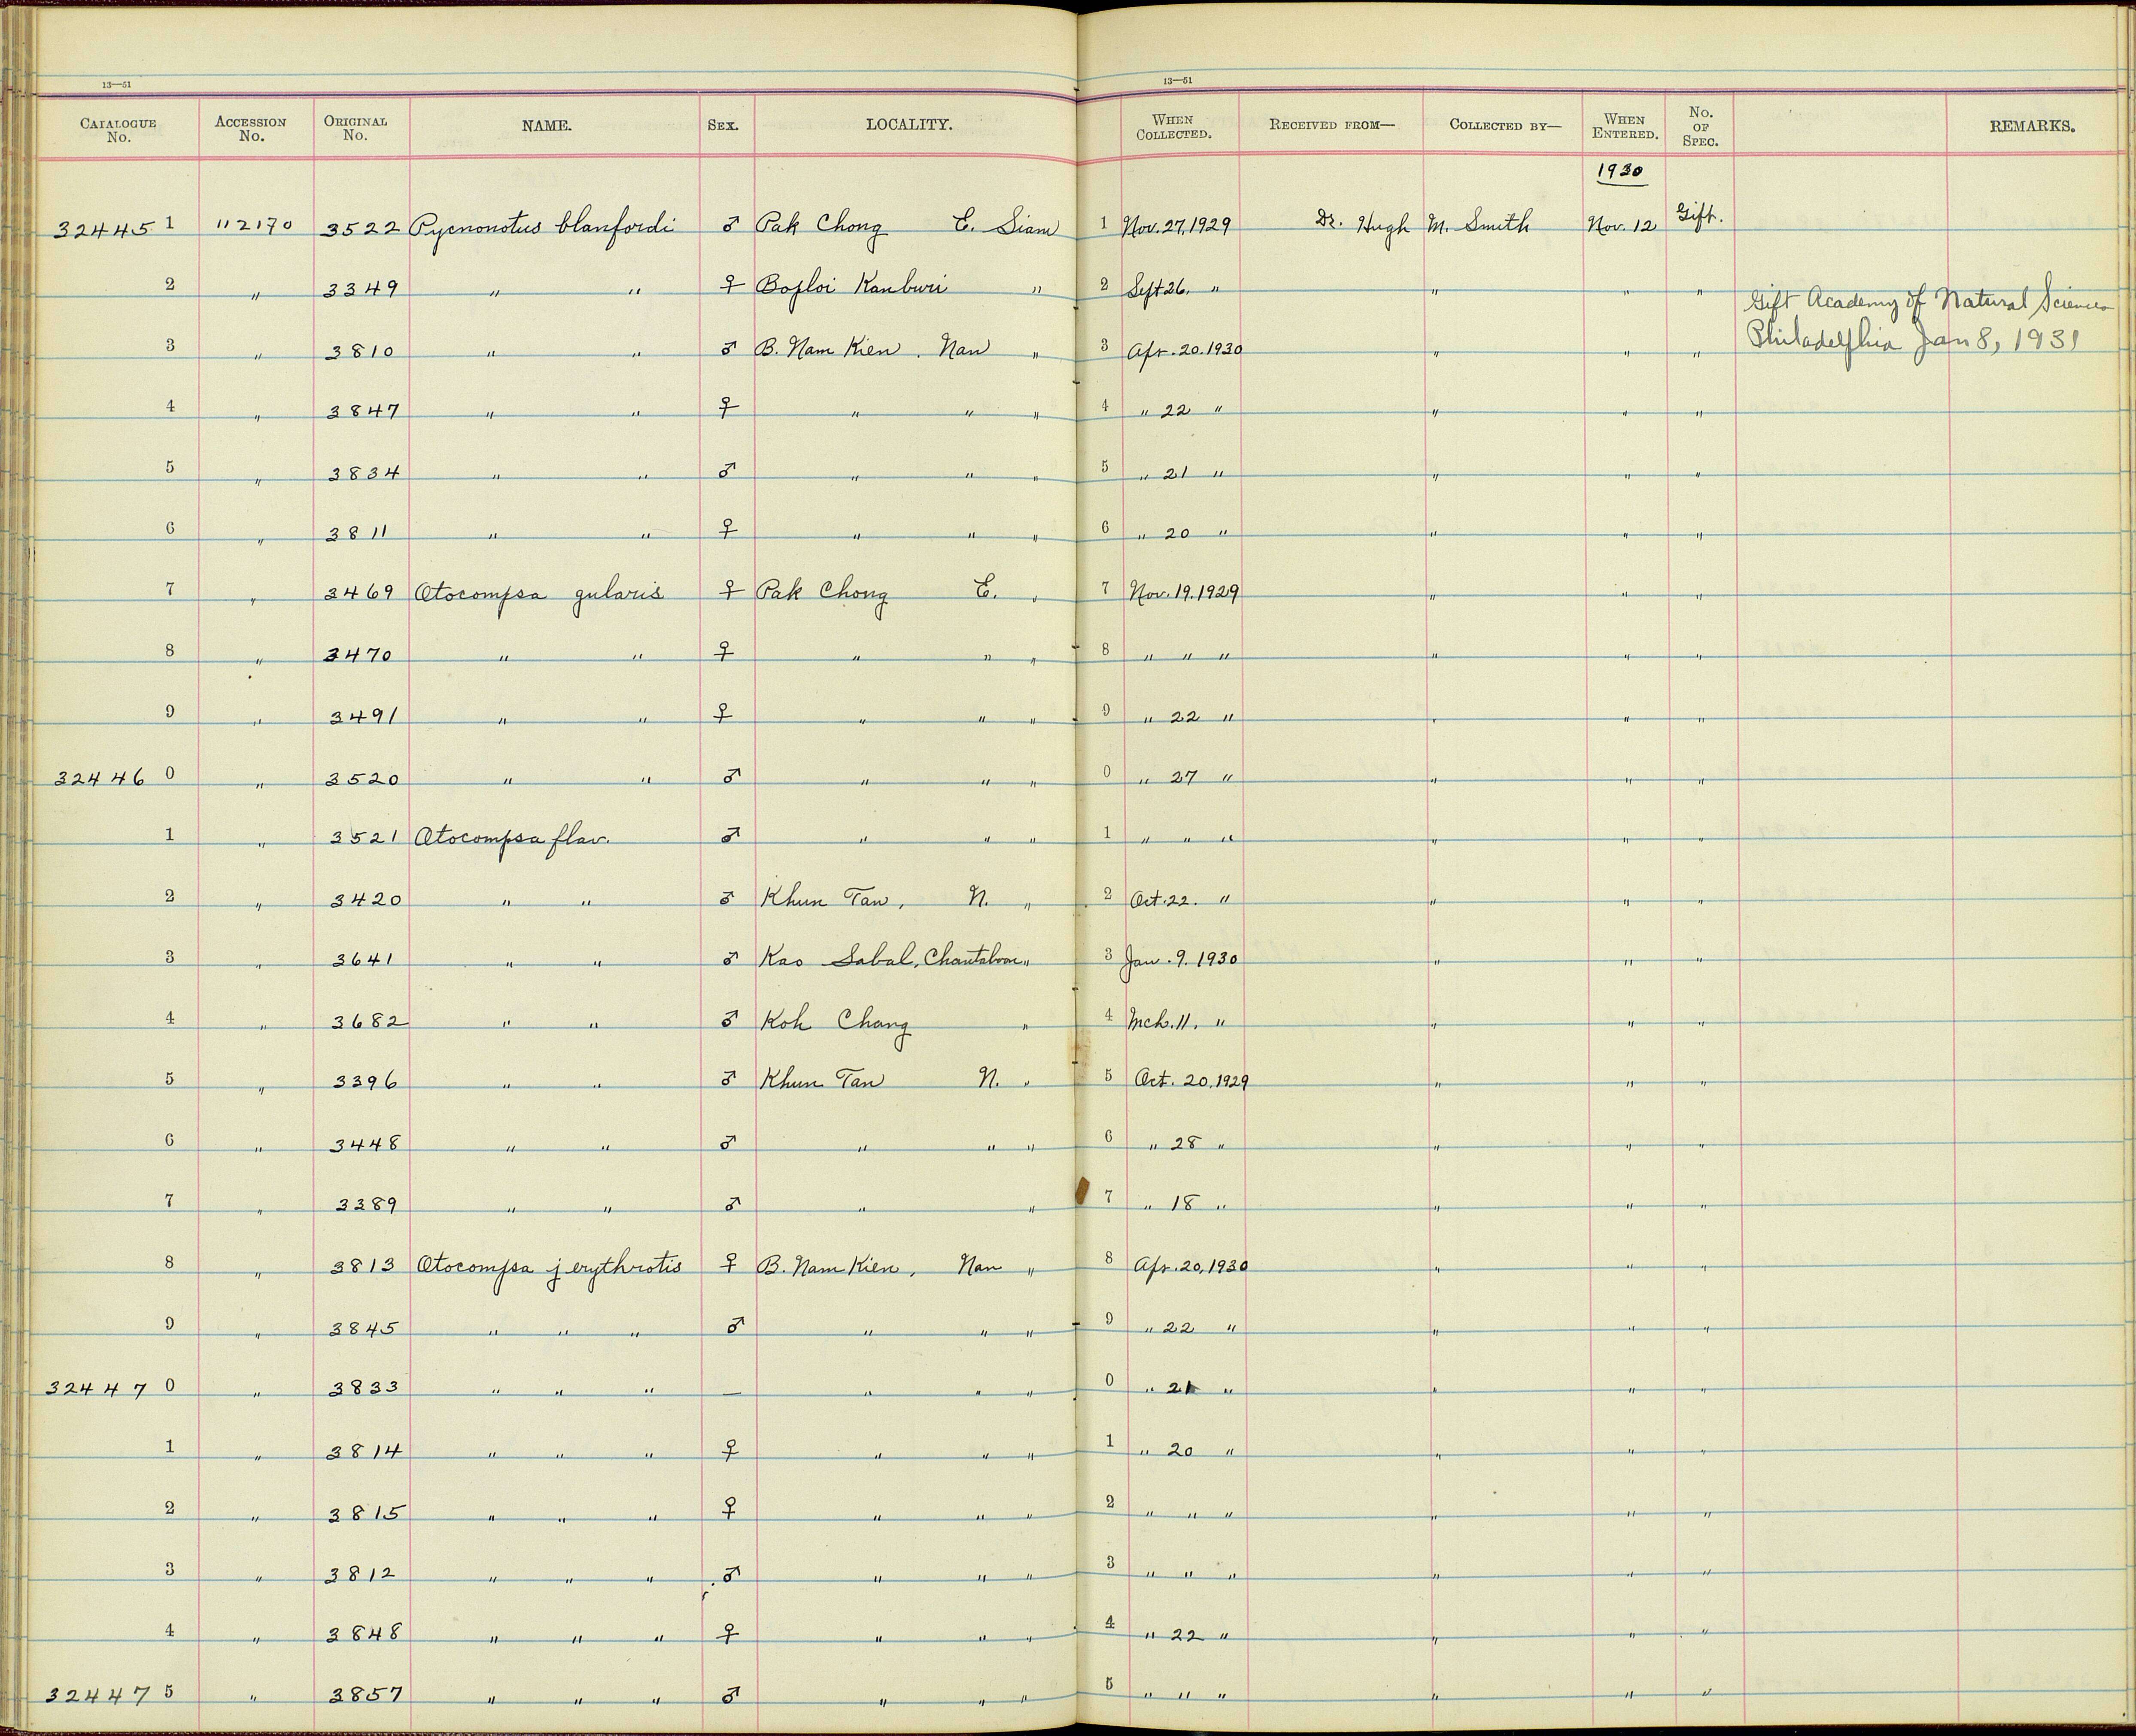 13—51 13—51
CATALOGUE No. ACCESSION No. ORIGINAL No. NAME. SEX. LOCALITY. WHEN COLLECTED. RECEIVED FROM— COLLECTED BY— WHEN ENTERED. No. OF SPEC. REMARKS.
1930
32445 1 112170 3522 Pycnonotus blanfordi ♂ Pak Chong E. Siam 1 Nov. 27, 1929 Dr. Hugh M. Smith Nov. 12 Gift.
2 " 3349 " " ♀ Boploi Kanburi " 2 Sept 26. " " " " Gift Academy of Natural Sciences
3 " 3810 " " ♂ B. Nam Kien, Nan " 3 Apr. 20. 1930 " " " Philadelphia Jan 8, 1931
4 " 3847 " " ♀ " " " 4 " 22 " " " "
5 " 3834 " " ♂ " " " 5 " 21 " " " "
6 " 3811 " " ♀ " " " 6 " 20 " " " "
7 " 3469 Otocompsa gularis ♀ Pak Chong E. " 7 Nov. 19. 1929 " " "
8 " 3470 " " ♀ " " " 8 " " " " " "
9 " 3491 " " ♀ " " " 9 " 22 " " " "
32446 0 " 3520 " " ♂ " " " 0 " 27 " " " "
1 " 3521 Otocompsa flav. ♂ " " " 1 " " " " " "
2 " 3420 " " ♂ Khun Tan, N. " 2 Oct. 22. " " " "
3 " 3641 " " ♂ Kao Sabal, Chantaboon " 3 Jan. 9. 1930 " " "
4 " 3682 " " ♂ Koh Chang " 4 Mch. 11. " " " "
5 " 3396 " " ♂ Khun Tan N. " 5 Oct. 20. 1929 " " "
6 " 3448 " " ♂ " " " 6 " 28 " " " "
7 " 3389 " " ♂ " " 7 " 18 " " " "
8 " 3813 Otocompsa j erythrotis ♀ B. Nam Kien, Nan " 8 Apr. 20, 1930 " " "
9 " 3845 " " " ♂ " " " 9 " 22 " " " "
32447 0 " 3833 " " " — " " " 0 " 21 " " " "
1 " 3814 " " " ♀ " " " 1 " 20 " " " "
2 " 3815 " " " ♀ " " " 2 " " " " " "
3 " 3812 " " " ♂ " " " 3 " " " " " "
4 " 3848 " " " ♀ " " " 4 " 22 " " " "
32447 5 " 3857 " " " ♂ " " " 5 " " " " " "